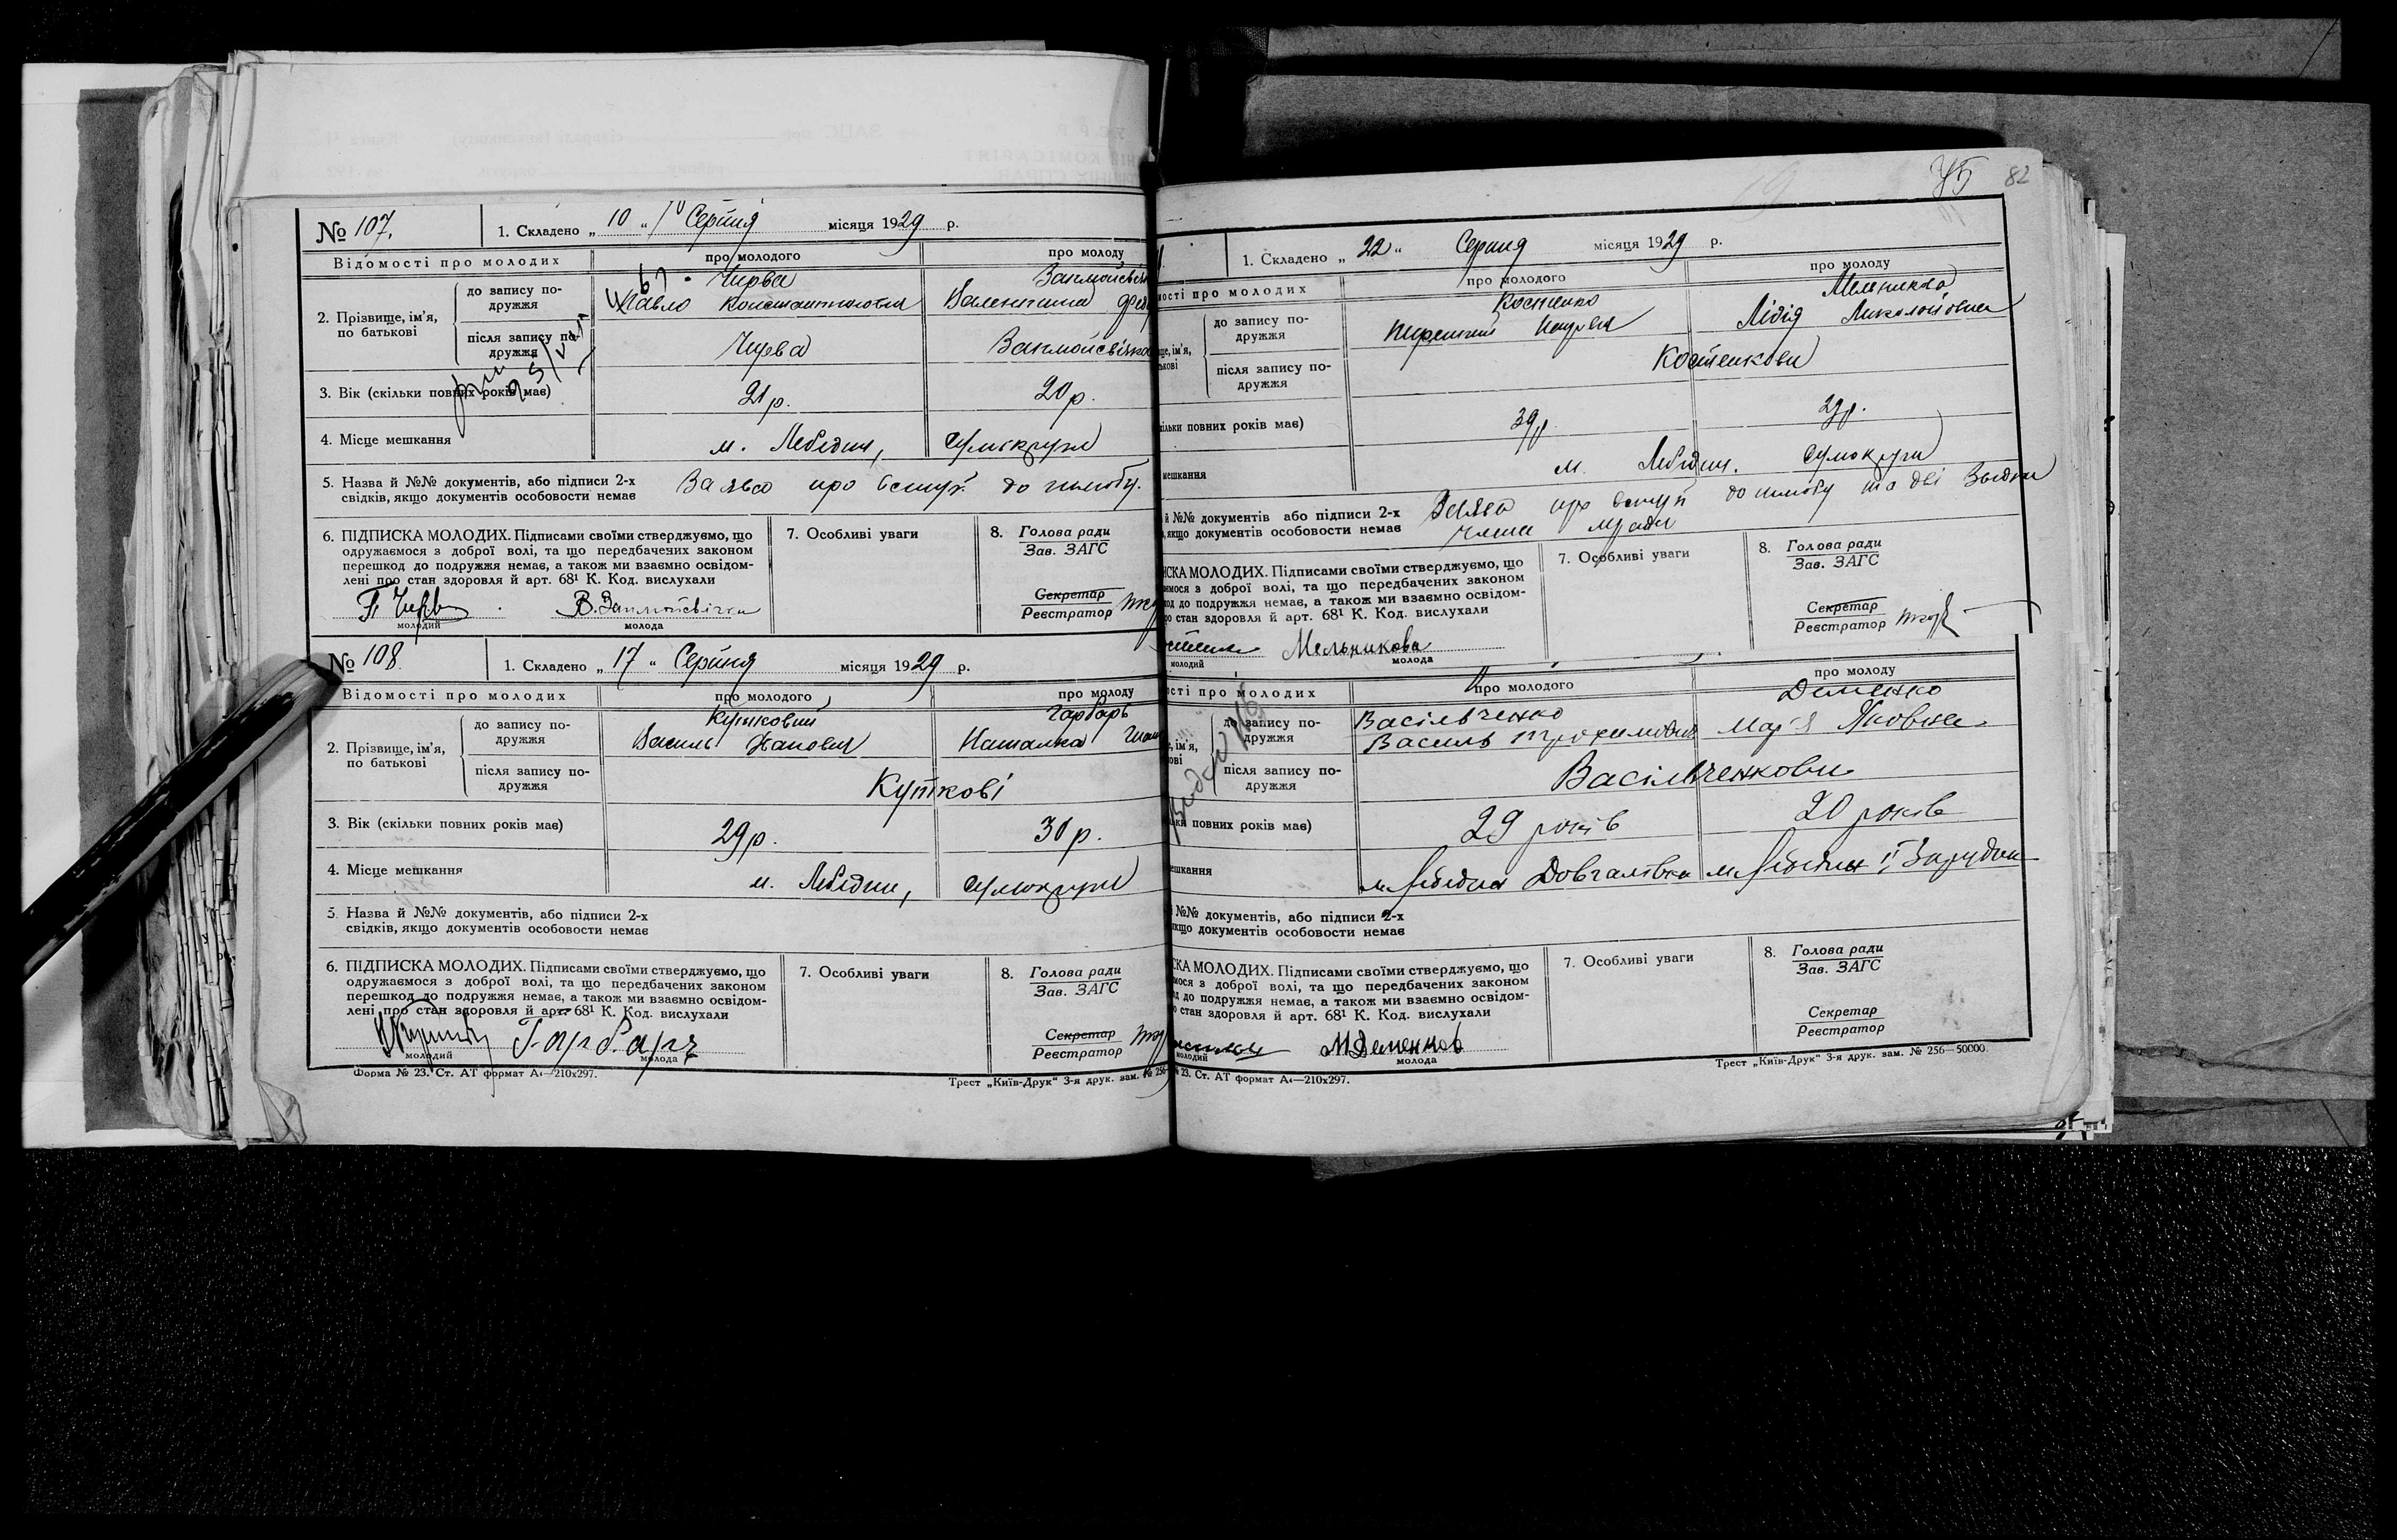 № 107.
1. Складено „ 10 „ Серпня місяця 1929 р.
Відомості про молодих
про молодого
про молоду
2. Прізвище, ім'я, по батькові
до запису подружжя
Чирва
Павло Константинович
Валентина
після запису подружжя
Чирва
3. Вік (скільки повних років має)
21 р.
20 р.
4. Місце мешкання
м. Лебедин, Сумокруги
5. Назва й №№ документів, або підписи 2-х
свідків, якщо документів особовости немає
Заява про вступ до шлюбу.
6. ПІДПИСКА МОЛОДИХ. Підписами своїми стверджуємо, що
одружаємося з доброї волі, та що передбачених законом
перешкод до подружжя немає, а також ми взаємно освідом-
лені про стан здоровля й арт. 68¹ К. Код. вислухали
П Чирв
молодий
молода
7. Особливі уваги
8. Голова ради
Зав. ЗАГС
Секретар
Реєстратор
№ 108.
1. Складено „ 17 „ Серпня місяця 1929 р.
Відомості про молодих
про молодого
про молоду
2. Прізвище, ім'я,
по батькові
до запису по-
дружжя
Кутковий
Гарбарь
Василь Іванович
Наталка
після запису по-
дружжя
Куткові
3. Вік (скільки повних років має)
29 р.
30 р.
4. Місце мешкання
м. Лебедин, Сумокруги
5. Назва й №№ документів, або підписи 2-х
свідків, якщо документів особовости немає
6. ПІДПИСКА МОЛОДИХ. Підписами своїми стверджуємо, що
одружаємося з доброї волі, та що передбачених законом
перешкод до подружжя немає, а також ми взаємно освідом-
лені про стан здоровля й арт. 68¹ К. Код. вислухали
Гарбарь
молодий
молода
7. Особливі уваги
8. Голова ради
Зав. ЗАГС
Секретар
Реєстратор
Форма № 23. Ст. АТ формат А₄—210х297.
Трест „Київ-Друк" 3-я друк. зам. № 256
75 82
1. Складено „ 22 „ Серпня місяця 1929 р.
ості про молодих
про молодого
про молоду
до запису по-
дружжя
Костенко
Мельникова
Лідія Миколаївна
після запису по-
дружжя
Костенкови
ільки повних років має)
39 р.
29 р.
мешкання
м. Лебедин. Сумокруги
й №№ документів або підписи 2-х
якщо документів особовости немає
Заява про вступ до шлюбу та дві
СКА МОЛОДИХ. Підписами своїми стверджуємо, що
ємося з доброї волі, та що передбачених законом
од до подружжя немає, а також ми взаємно освідом-
ро стан здоровля й арт. 68¹ К. Код. вислухали
Мельникова
молодий
молода
7. Особливі уваги
8. Голова ради
Зав. ЗАГС
Секретар
Реєстратор
сті про молодих
про молодого
про молоду
до запису по-
дружжя
Васільченко
Деменко
Василь Трохимович
Мар'я Яковна
після запису по-
дружжя
Васільченкови
повних років має)
29 років
20 років
ешкання
м Лебедин Довгалівка
м Лебедин
№№ документів, або підписи 2-х
якщо документів особовости немає
СКА МОЛОДИХ. Підписами своїми стверджуємо, що
мося з доброї волі, та що передбачених законом
д до подружжя немає, а також ми взаємно освідом-
о стан здоровля й арт. 68¹ К. Код. вислухали
молодий
молода
7. Особливі уваги
8. Голова ради
Зав. ЗАГС
Секретар
Реєстратор
23. Ст. АТ формат А₄—210х297.
Трест „Київ-Друк" 3-я друк. зам. № 256—50000.